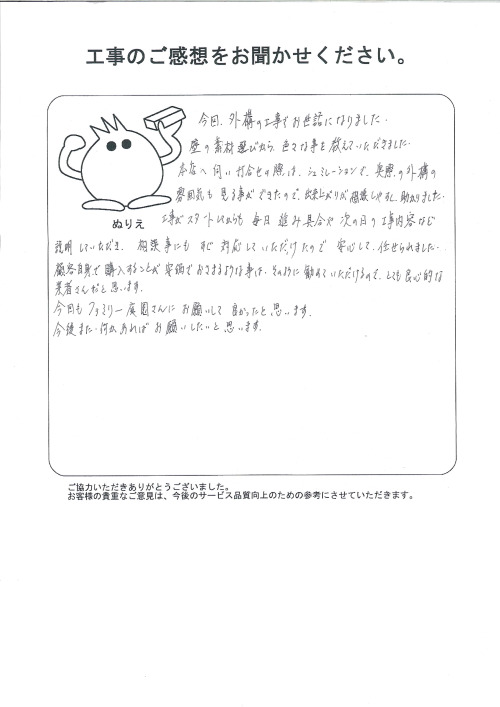 工事のご感想をお聞かせください。
今回、外構の工事でお世話になりました。
壁の素材選びから、色々な事を教えていただきました。
本店へ伺い打合せの際は、シュミレーションで、実際の外構の
雰囲気も見る事ができたので、出来上がりが想像しやすく、助かりました。
ぬりえ
工事がスタートしてからも毎日進み具合や次の日の工事内容など
説明していただき、相談事にもすぐ対応していただけたので安心して、任せられました。
顧客自身で購入することが安価でおさまるような事は、そのように勧めていただけるので、とても良心的な
業者さんだと思います。
今回もファミリー庭園さんにお願いして良かったと思います。
今後また何かあればお願いしたいと思います。
ご協力いただきありがとうございました。
お客様の貴重なご意見は、今後のサービス品質向上のための参考にさせていただきます。